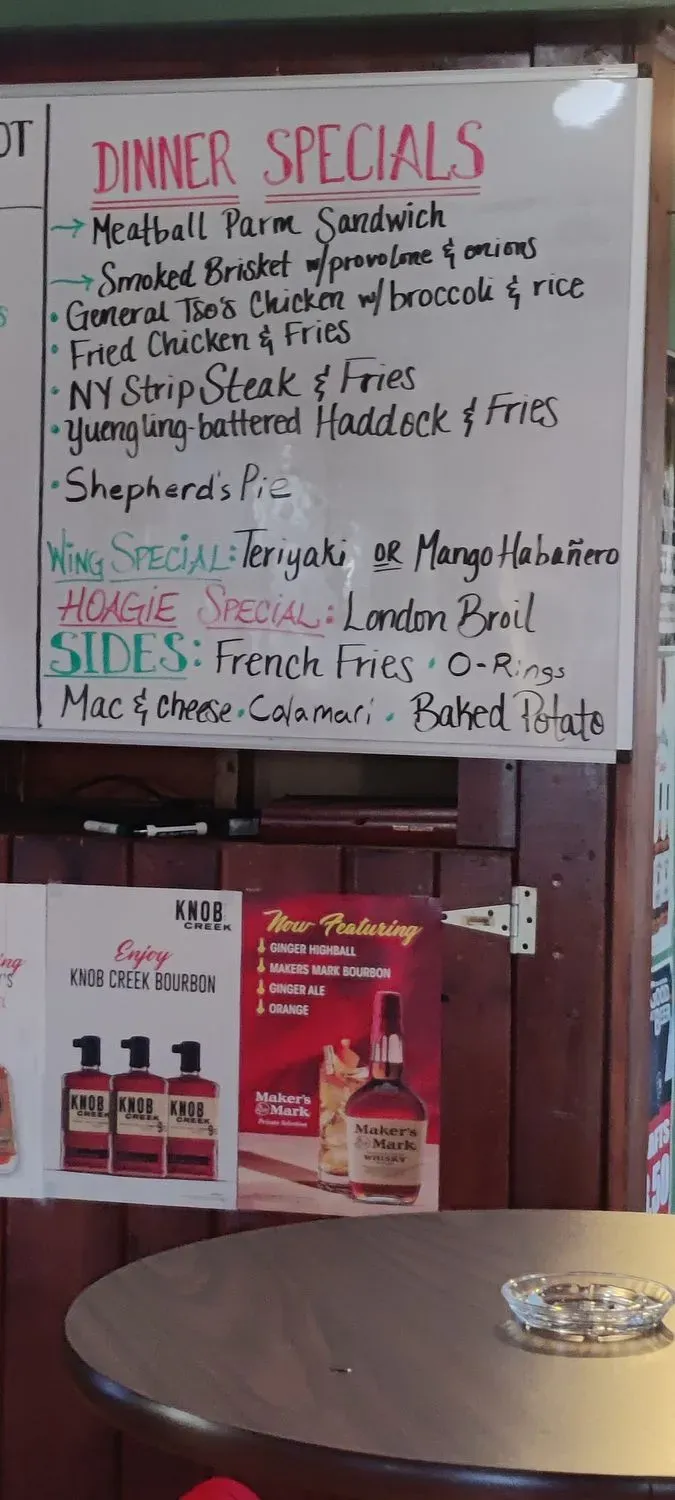 OT
DINNER SPECIALS
→ Meatball Parm Sandwich
→ Smoked Brisket w/provolone & onions
• General Tso's Chicken w/ broccoli & rice
• Fried Chicken & Fries
• NY Strip Steak & Fries
• Yuengling-battered Haddock & Fries
• Shepherd's Pie
WING SPECIAL: Teriyaki OR Mango Habañero
HOAGIE SPECIAL: London Broil
SIDES: French Fries • O-Rings
Mac & cheese • Calamari • Baked Potato
KNOB
CREEK
Enjoy
KNOB CREEK BOURBON
KNOB
CREEK
KNOB
CREEK
9
KNOB
CREEK
9
Now Featuring
GINGER HIGHBALL
MAKERS MARK BOURBON
GINGER ALE
ORANGE
Maker's
Mark
Private Selection
Maker's
Mark
WHISKY